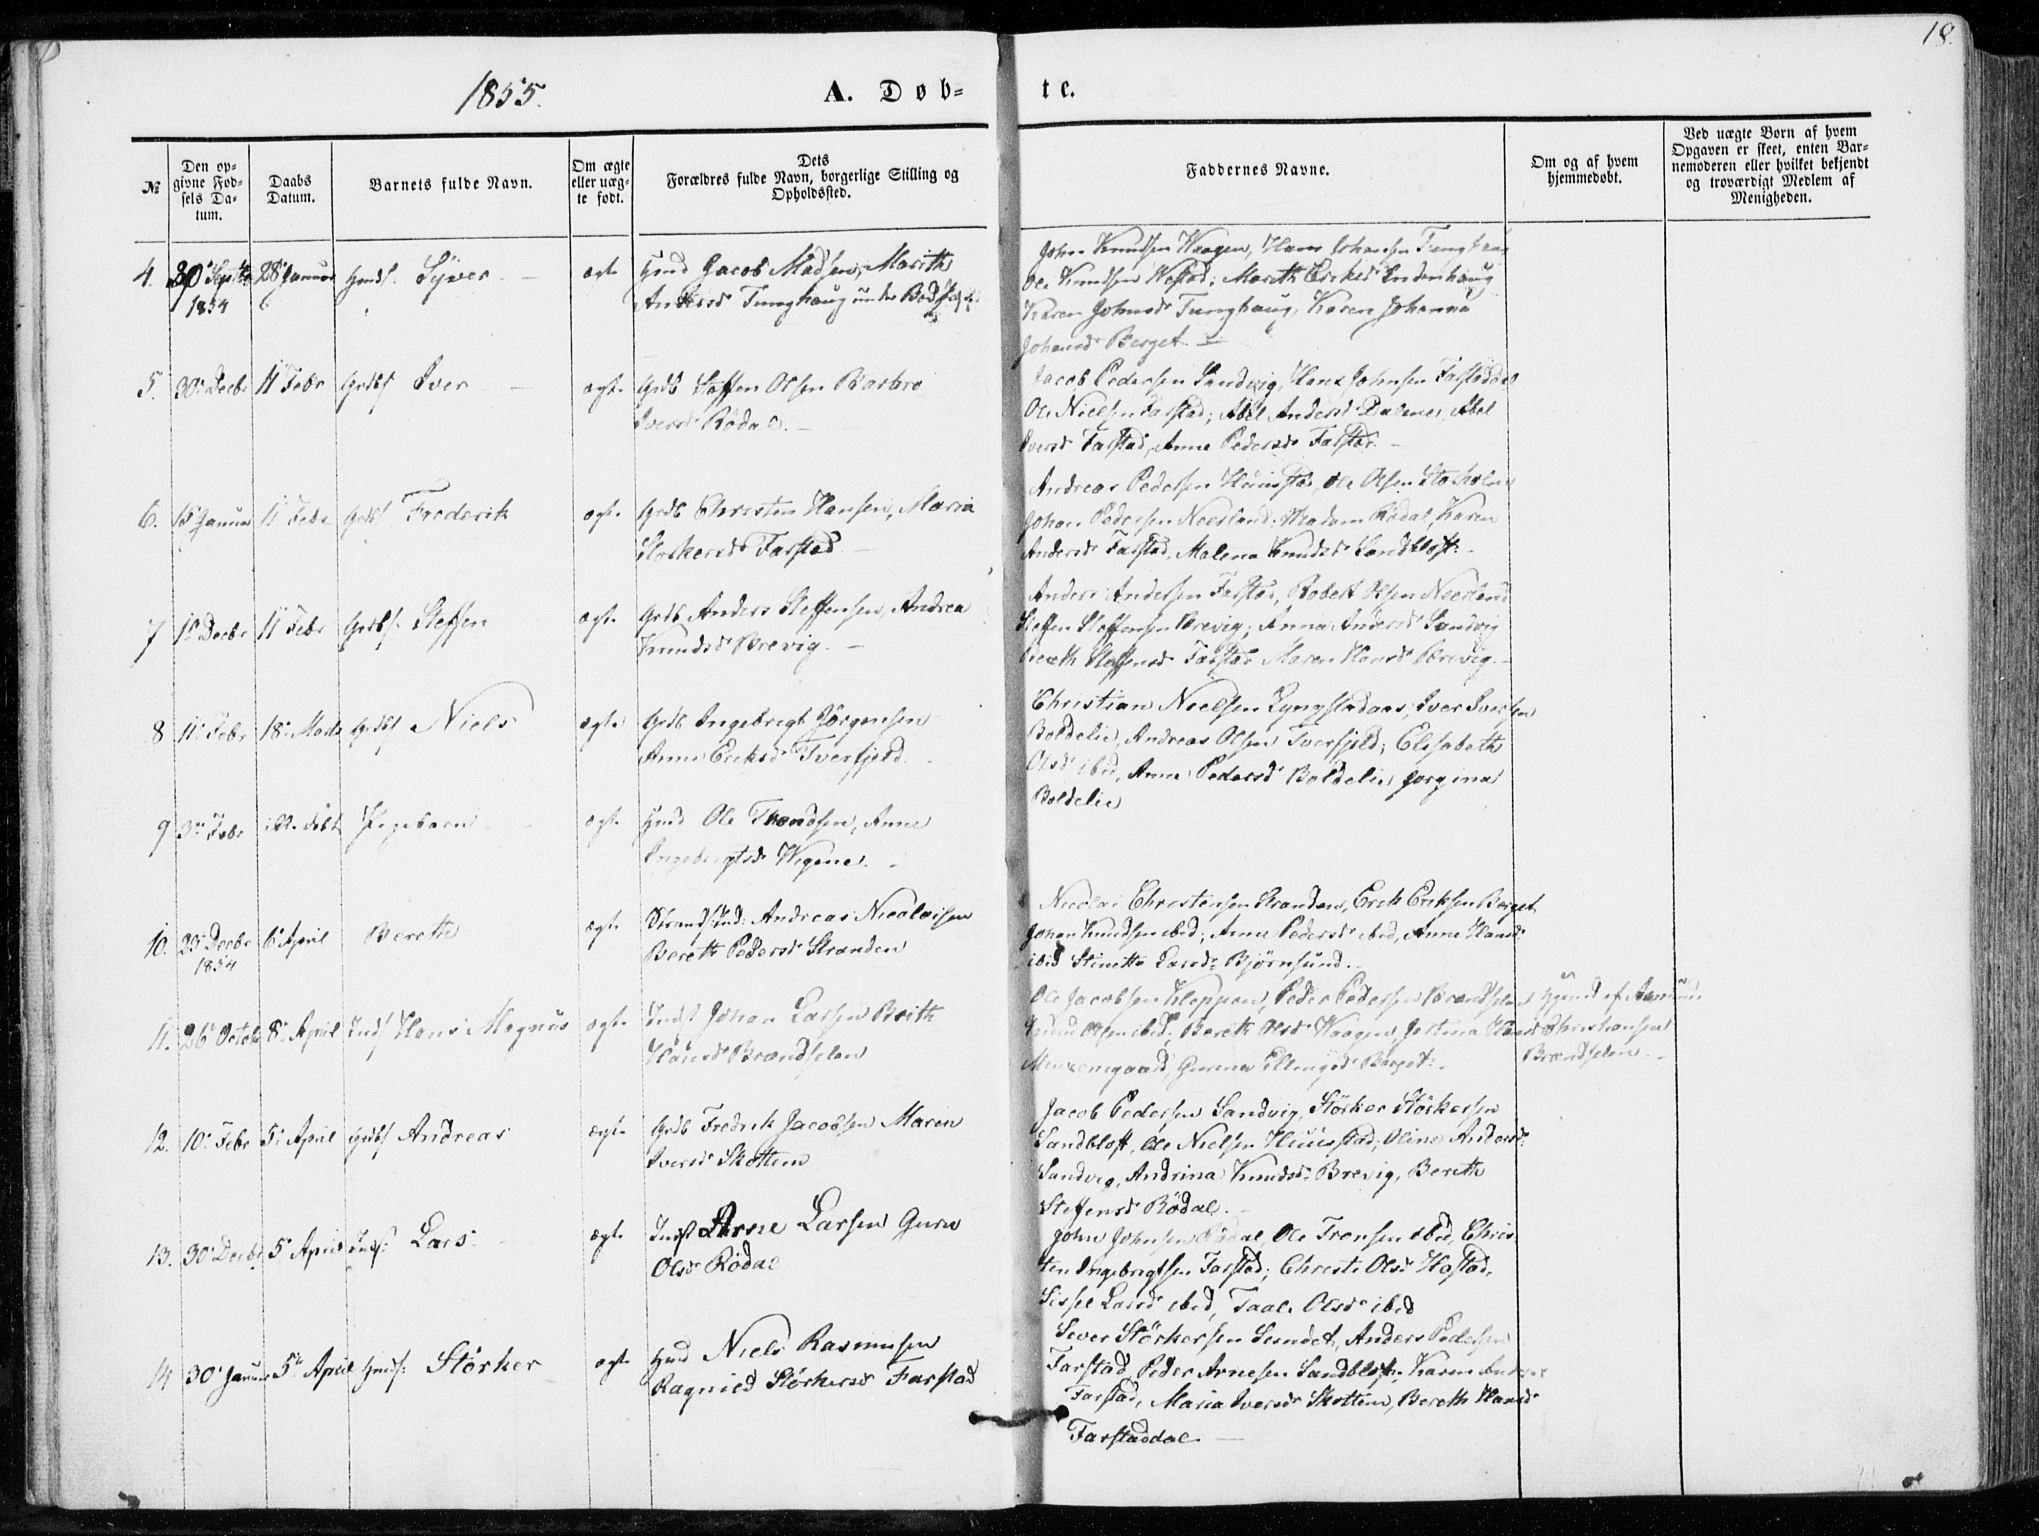 18.
1855.
A. Døb-
te.
No
Den op-
givne Fød-
sels Da-
tum.
Daabs
Datum.
Barnets fulde Navn.
Om ægte
eller uæg-
te født.
Dets
Forældres fulde Navn, borgerlige Stilling og
Opholdssted.
Faddernes Navne.
Om og af hvem
hjemmedøbt.
Ved uægte Børn af hvem
Opgaven er skeet, enten Bar-
nemoderen eller hvilket bekjendt
og troværdigt Medlem af
Menigheden.
4. 30 Septbr 28 Januar Hmds. Syver ægte Hmd Jacob Madsen, Marith
1854 Andersd Tunghaug under
John Knudsen Waagen, Hans Johansen Tunghaug
Ole Knudsen Hestad; Marith Eriksd Endenhaug
Karen Johnsd Tunghaug, Karen Johanna
Johansd Berget
5. 30 Decbr 11 Febr Grdbs Iver ægte Grdb Steffen Olsen Barbro
Iversd Rødal.
Jacob Pedersen Sandvig, Hans Johnsen Farstaddal
Ole Nielsen Farstad; Abel Andersd Dalene, Abel
Iversd Farstad, Anne Pedersd Farstad.
6. 15 Januar 11 Febr Grdbs Frederik ægte Grdb Christen Hansen, Maria
Størkersd Farstad
Andreas Pedersen Huustad, Ole Olsen Stosholm
Johan Pedersen Neerland. Madam Rødal, Karen
Andersd Farstad, Malena Knudsd Sandbloft.
7 10 Decbr 11 Febr Grdbs. Steffen ægte Grdb Anders Steffensen, Andrea
Knudsd Brevig.
Anders Andersen Farstad, Robert Olsen Neerland
Steffen Steffensen Brevig; Anna Andersd Sandvig
Bereth Steffensd Farstad Maren Hansd Brevig.
8 11 Febr 18 Marts Grdbs Niels ægte Grdb Ingebrigt Jørgensen
Anne Eriksd Tverfjeld.
Christian Nielsen Lyngstadaas, Iver Iversen
Boldelie, Andreas Olsen Tverfjeld; Elisabeth
Olsd ibid, Anne Pedersd Boldelie, Gorgina
Boldelie
9 3 Febr ikke døbt Pigebarn ægte Hmd Ole Thondsen, Anne
Ingebrigtsd Wigene.
10. 23 Decbr 6 April Bereth ægte Andreas Nicolaisen
1854 Bereth Pedersd Stranden
Nicolai Christensen Stranden, Erik Eriksen Berget
Johan Knudsen ibid; Anne Pedersd ibid, Anne Hansd
ibid Stinette Larsd Bjørnsund.
11. 26 Octob 8 April Inds Hans Magnus ægte Indst Johan Larsen Brith
Hansd Brandsolen
Ole Jacobsen Kleppen, Peder Pedersen Brandsolen
Knud Olsen ibid; Bereth Olsd Waagen, Jertina Hansd
Gunna Ellingsd Berget.
Hjemd af
Christiansen
Brandsolen.
12. 10 Febr 5 April Grdbs Andreas ægte Grdb Fredrik Jacobsen Maren
Iversd Skottem
Jacob Pedersen Sandvig, Størker Størkersen
Sandbloft, Ole Nielsen Huustad; Oline Andersd
Sandvig, Andrina Knudsd Brevig, Bereth
Steffensd Rødal.
13. 30 Decbr 5 April Inds: Lars ægte Indst Arne Larsen Guru
Olsd Rødal
John Johnsen Rødal, Ole Tronsen ibid, Chris-
ten Ingebrigtsen Farstad; Christi Olsd Hostad,
Sissel Larsd ibid, Taale Olsd ibid
14 30 Januar 5te April Hmds: Størker ægte Hmd Niels Rasmusen
Ragnild Størkersd Farstad
Sever Størkersen Sundet, Anders Pedersen
Farstad, Peder Arnesen Sandbloft. Karen
Farstad, Maria Iversd Skottem, Bereth Hansd
Farstaddal